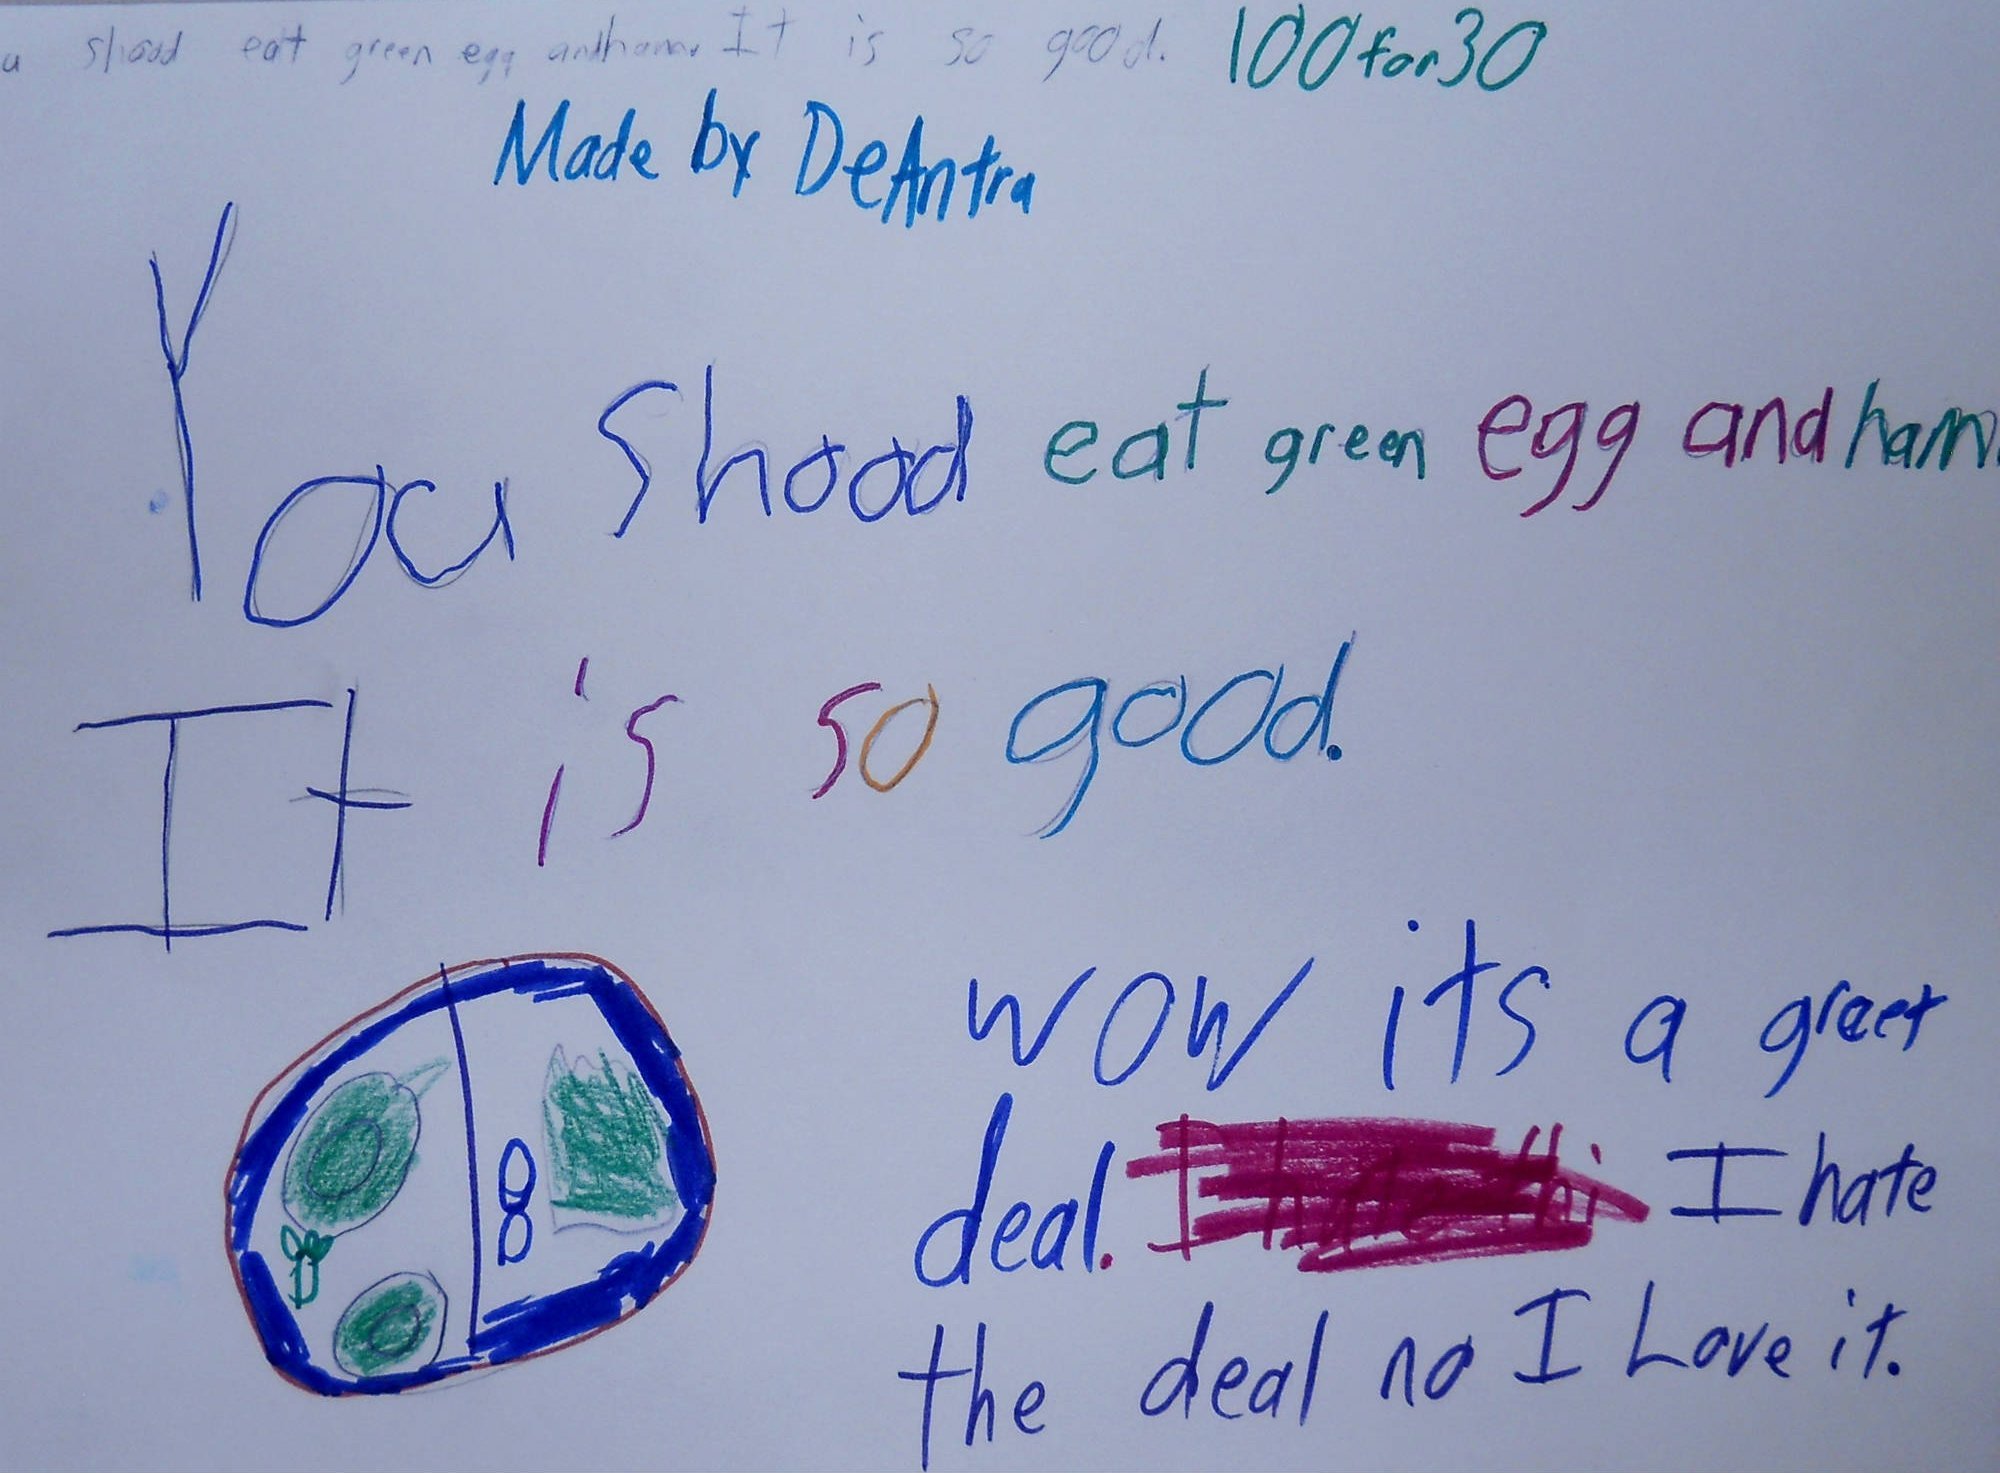 u shood eat green egg andham. It is so good. 100 for 30
Made by DeAntra
You shood eat green egg and ham.
It is so good.
wow its a graet
deal. I hate thi I hate
the deal no I Love it.